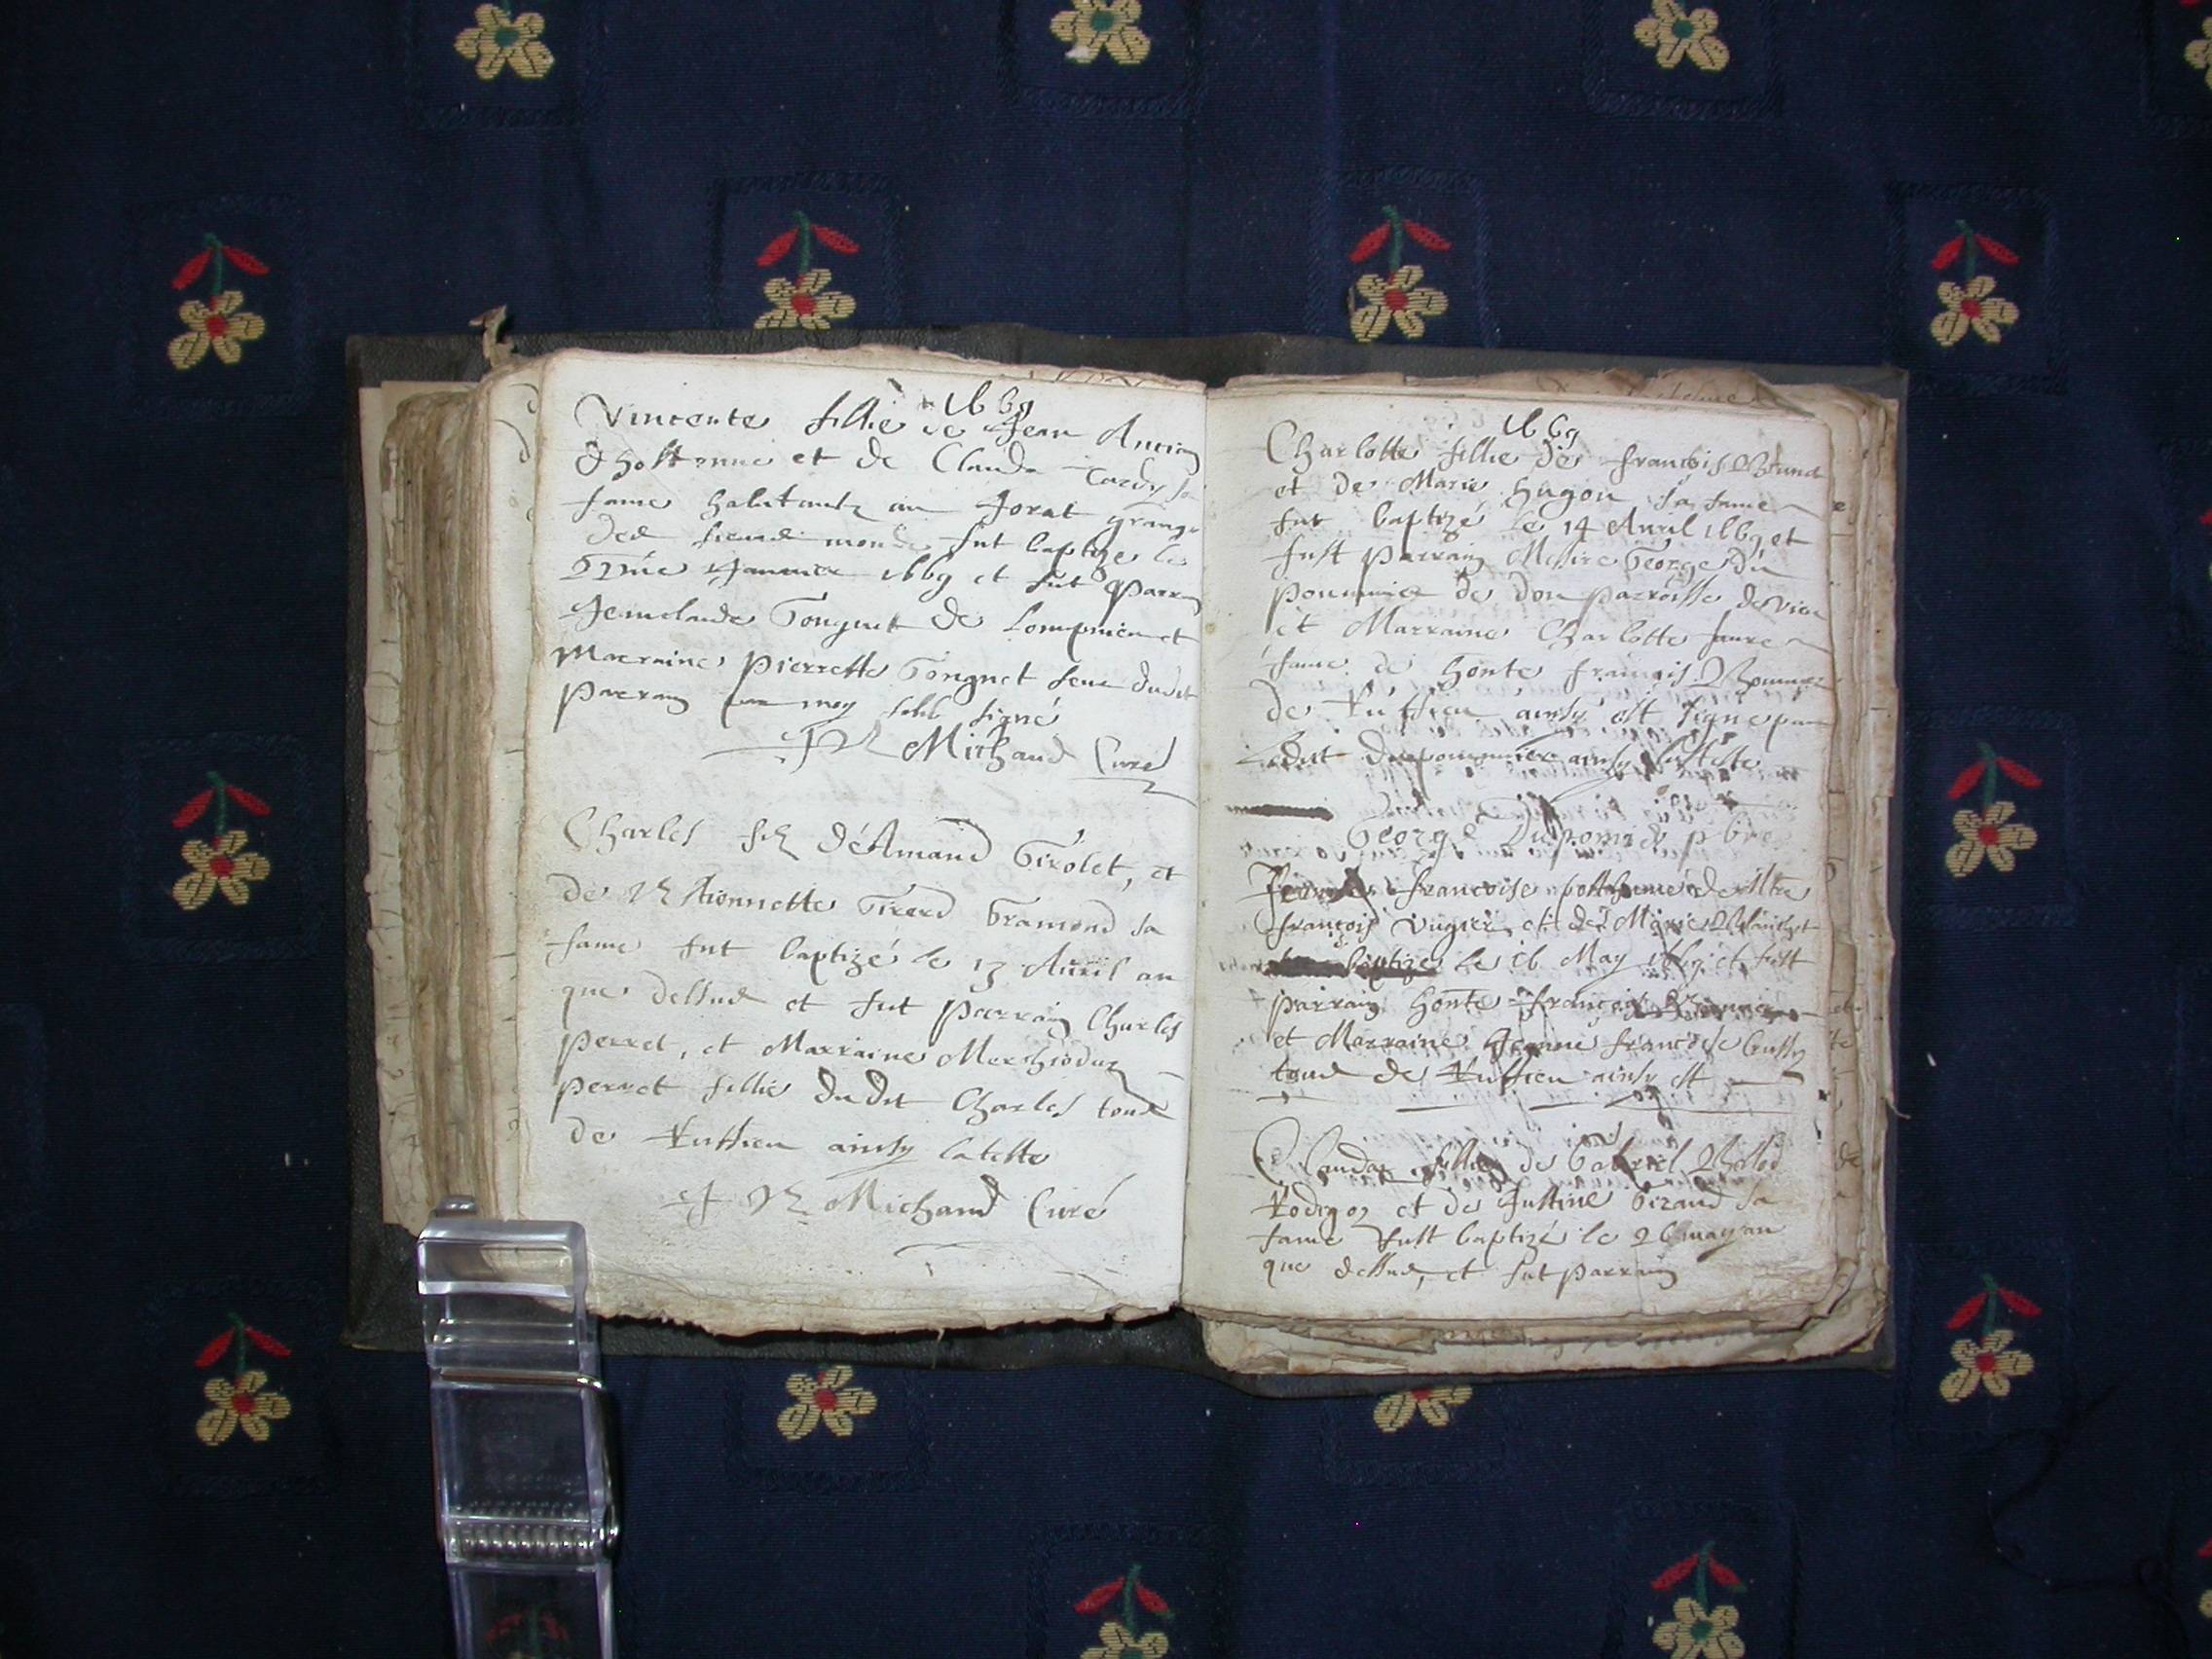 1669
Vincente fillie de Jean Antion
Dhostonne et de Clauda Tardy sa
fame habitantz au Jorat grange
des fut baptize le
Janvier 1669 et fut parrain
Jenclaude Gonguet de Lompnieu et
Marraine pierrette Gonguet seur dudit
parrain moy soub signé
Michaud Curé
Charles filz de Amand Girolet, et
de Estiennette Girerd Gramond sa
fame fut baptizé le 13 Auril an
que dessus et fut parrain Charles
perret, et Marraine
perret fillie dudit Charles tous
de Ruffieu ainsy latteste
Michaud Curé
1669
Charlotte fillie de francois Brunet
et de Marie hugon sa fame
fut baptizé le 14 Auril 1669 et
fust parrain Messire George du
pommier de don parroisse de vieu
et Marraine Charlotte faure
fame de honte françois
de Ruffieu ainsy est signe par
ledit Dupommier ainsy latteste
George Dupomier pbre
françoise posthume de Mtre
françois vugier et de Marie
baptize le 16 May 1669 et fust
parrain honte françois
et Marraine Jeanne françoise Cussy
tous de Ruffieu ainsy est
Claudaz fillie de Gabriel
Rodigoz et de Justine Giraud sa
fame fust baptizé le 26 may an
que dessus, et fut parrain